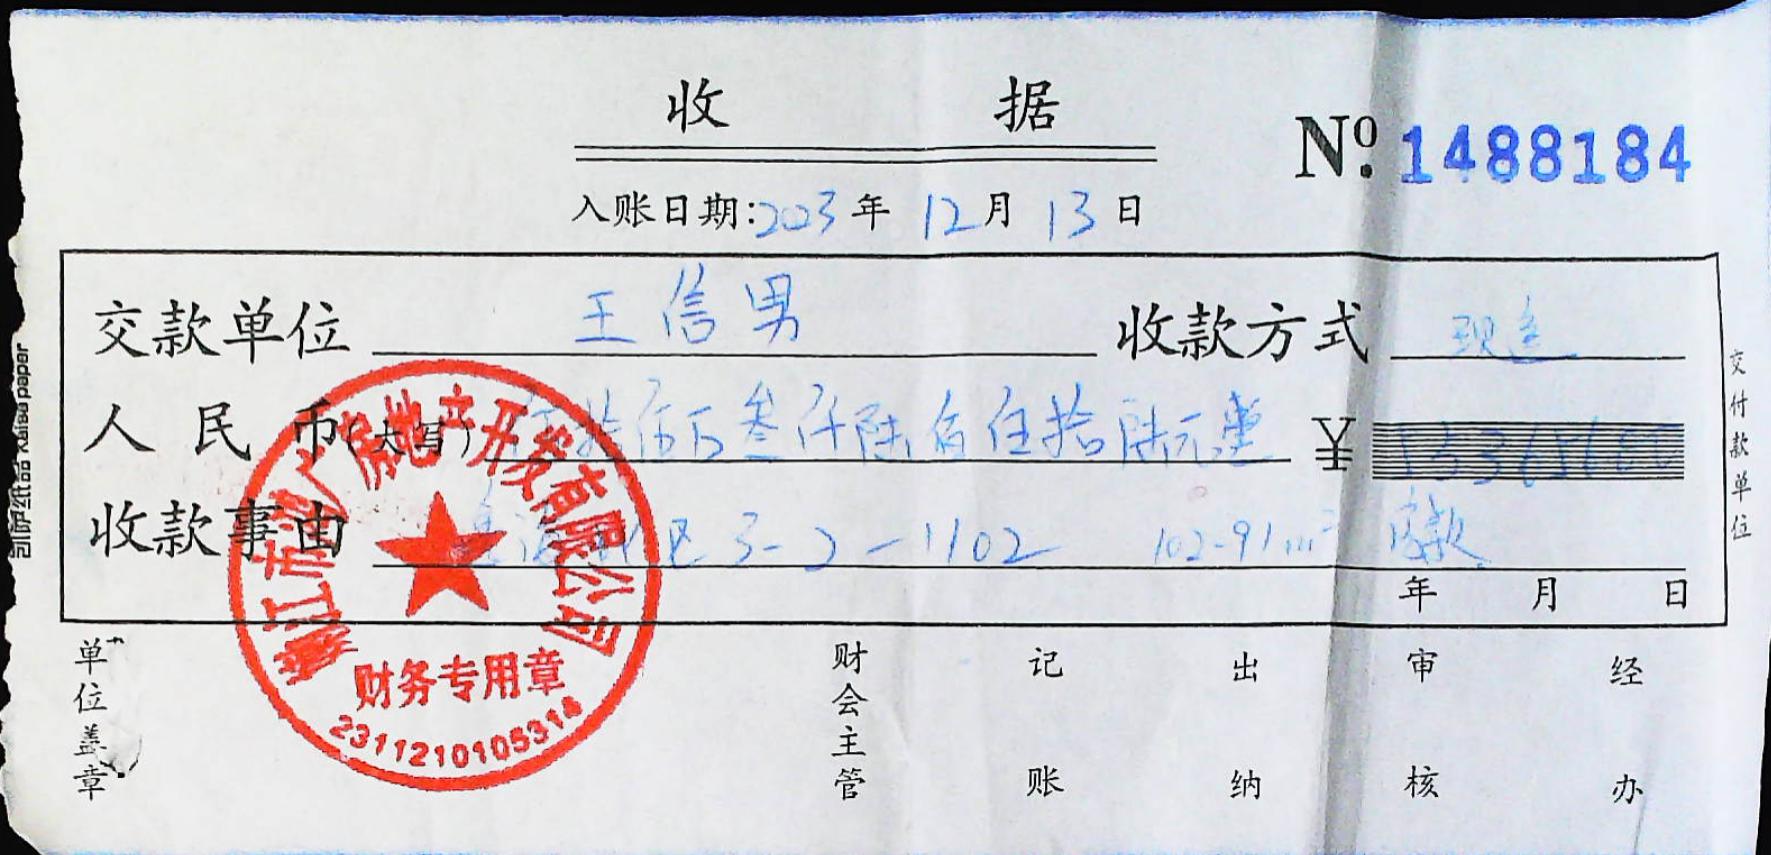 收 据
No. 1488184
入账日期:2023年 12月 13日
交款单位 王信男 收款方式 现金
人民币(大写) 拾伍万叁仟陆佰伍拾陆元整 ¥ 153656.00
收款事由 区3-2-1102 102.91m² 房款
年 月 日
交付款单位
单位盖章
财会主管 记账 出纳 审核 经办
房地产开发有限公司
财务专用章
2311210105314